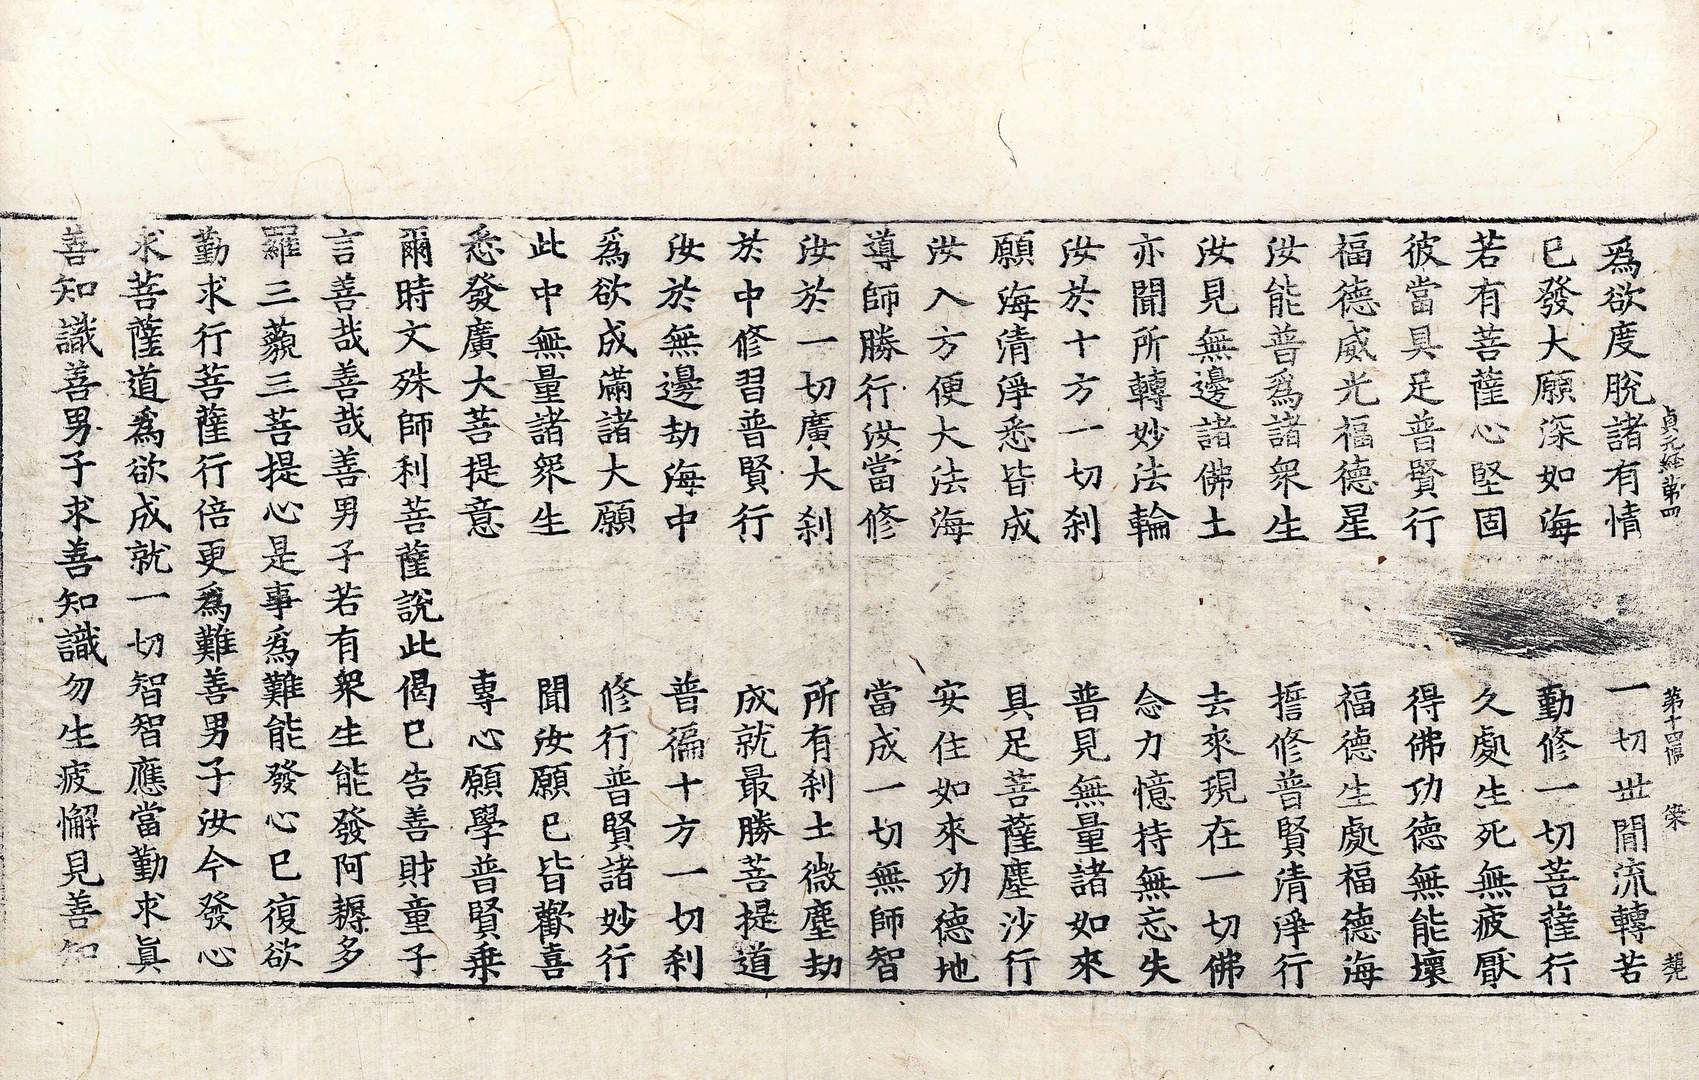 貞元経第四　第十四幅　榮
爲欲度脫諸有情　一切世間流轉苦
已發大願深如海　勤修一切菩薩行
若有菩薩心堅固　久處生死無疲厭
彼當具足普賢行　得佛功德無能壞
福德威光福德星　福德生處福德海
汝能普爲諸衆生　誓修普賢清淨行
汝見無邊諸佛土　去來現在一切佛
亦聞所轉妙法輪　念力憶持無忘失
汝於十方一切刹　普見無量諸如來
願海清淨悉皆成　具足菩薩塵沙行
汝入方便大法海　安住如來功德地
導師勝行汝當修　當成一切無師智
汝於一切廣大刹　所有刹土微塵劫
於中修習普賢行　成就最勝菩提道
汝於無邊劫海中　普徧十方一切刹
爲欲成滿諸大願　修行普賢諸妙行
此中無量諸衆生　聞汝願已皆歡喜
悉發廣大菩提意　專心願學普賢乗
爾時文殊師利菩薩說此偈已告善財童子
言善哉善哉善男子若有衆生能發阿耨多
羅三藐三菩提心是事爲難能發心已復欲
勤求行菩薩行倍更爲難善男子汝今發心
求菩薩道爲欲成就一切智智應當勤求眞
善知識善男子求善知識勿生疲懈見善知